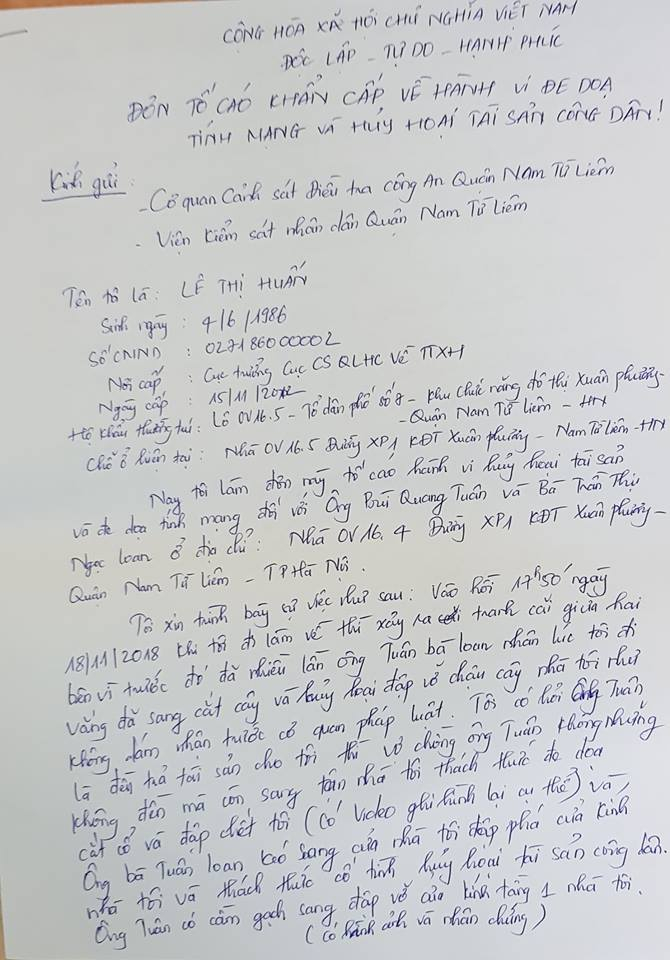 CỘNG HÒA XÃ HỘI CHỦ NGHĨA VIỆT NAM
ĐỘC LẬP - TỰ DO - HẠNH PHÚC
ĐƠN TỐ CÁO KHẨN CẤP VỀ HÀNH VI ĐE DỌA
TÍNH MẠNG VÀ HỦY HOẠI TÀI SẢN CÔNG DÂN!
Kính gửi :
- Cơ quan Cảnh sát điều tra công An Quận Nam Từ Liêm
- Viện Kiểm sát nhân dân Quận Nam Từ Liêm
Tên tôi là : LÊ THỊ HUẤN
Sinh ngày : 4/6/1986
Số CMND : 027186000002
Nơi cấp : Cục trưởng Cục CS QLHC Về TTXH
Ngày cấp : 15/11/2012
Hộ khẩu thường trú : Lô OV16.5 - Tổ dân phố số 8 - Khu chức năng đô thị Xuân phương -
- Quận Nam Từ Liêm - HN
Chỗ ở hiện tại : Nhà OV16.5 Đường XP1 KĐT Xuân phương - Nam Từ Liêm - HN
Nay tôi làm đơn này tố cáo hành vi hủy hoại tài sản
và đe dọa tính mạng đối với Ông Bùi Quang Tuấn và Bà Trần Thị
Ngọc Loan ở địa chỉ : Nhà OV16.4 Đường XP1 KĐT Xuân phương -
Quận Nam Từ Liêm - TP Hà Nội.
Tôi xin trình bày sự việc như sau : Vào hồi 17h50' ngày
18/11/2018 khi tôi đi làm về thì xảy ra tranh cãi giữa hai
bên vì trước đó đã nhiều lần ông Tuấn bà loan nhân lúc tôi đi
vắng đã sang cắt cây và hủy hoại đập vỡ chậu cây nhà tôi nhưng
không dám nhận trước cơ quan pháp luật. Tôi có hỏi ông Tuấn
là đền trả tài sản cho tôi thì vợ chồng ông Tuấn không những
không đền mà còn sang tận nhà tôi thách thức đe dọa
cắt cổ và đập chết tôi (có video ghi hình lại cụ thể) và,
Ông bà Tuấn loan kéo sang cửa nhà tôi đập phá cửa kính
nhà tôi và thách thức cố tình hủy hoại tài sản công dân.
Ông Tuấn có cầm gạch sang đập vỡ cửa kính tầng 1 nhà tôi.
(có hình ảnh và nhân chứng)